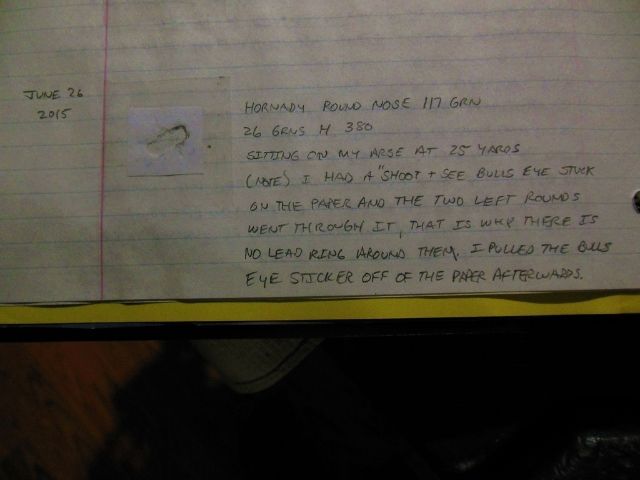 JUNE 26
2015
HORNADY ROUND NOSE 117 GRN
26 GRNS H 380
SITTING ON MY ARSE AT 25 YARDS
(NOTE) I HAD A "SHOOT + SEE BULLS EYE STUCK
ON THE PAPER AND THE TWO LEFT ROUNDS
WENT THROUGH IT, THAT IS WHY THERE IS
NO LEAD RING AROUND THEM. I PULLED THE BULLS
EYE STICKER OFF OF THE PAPER AFTERWARDS.